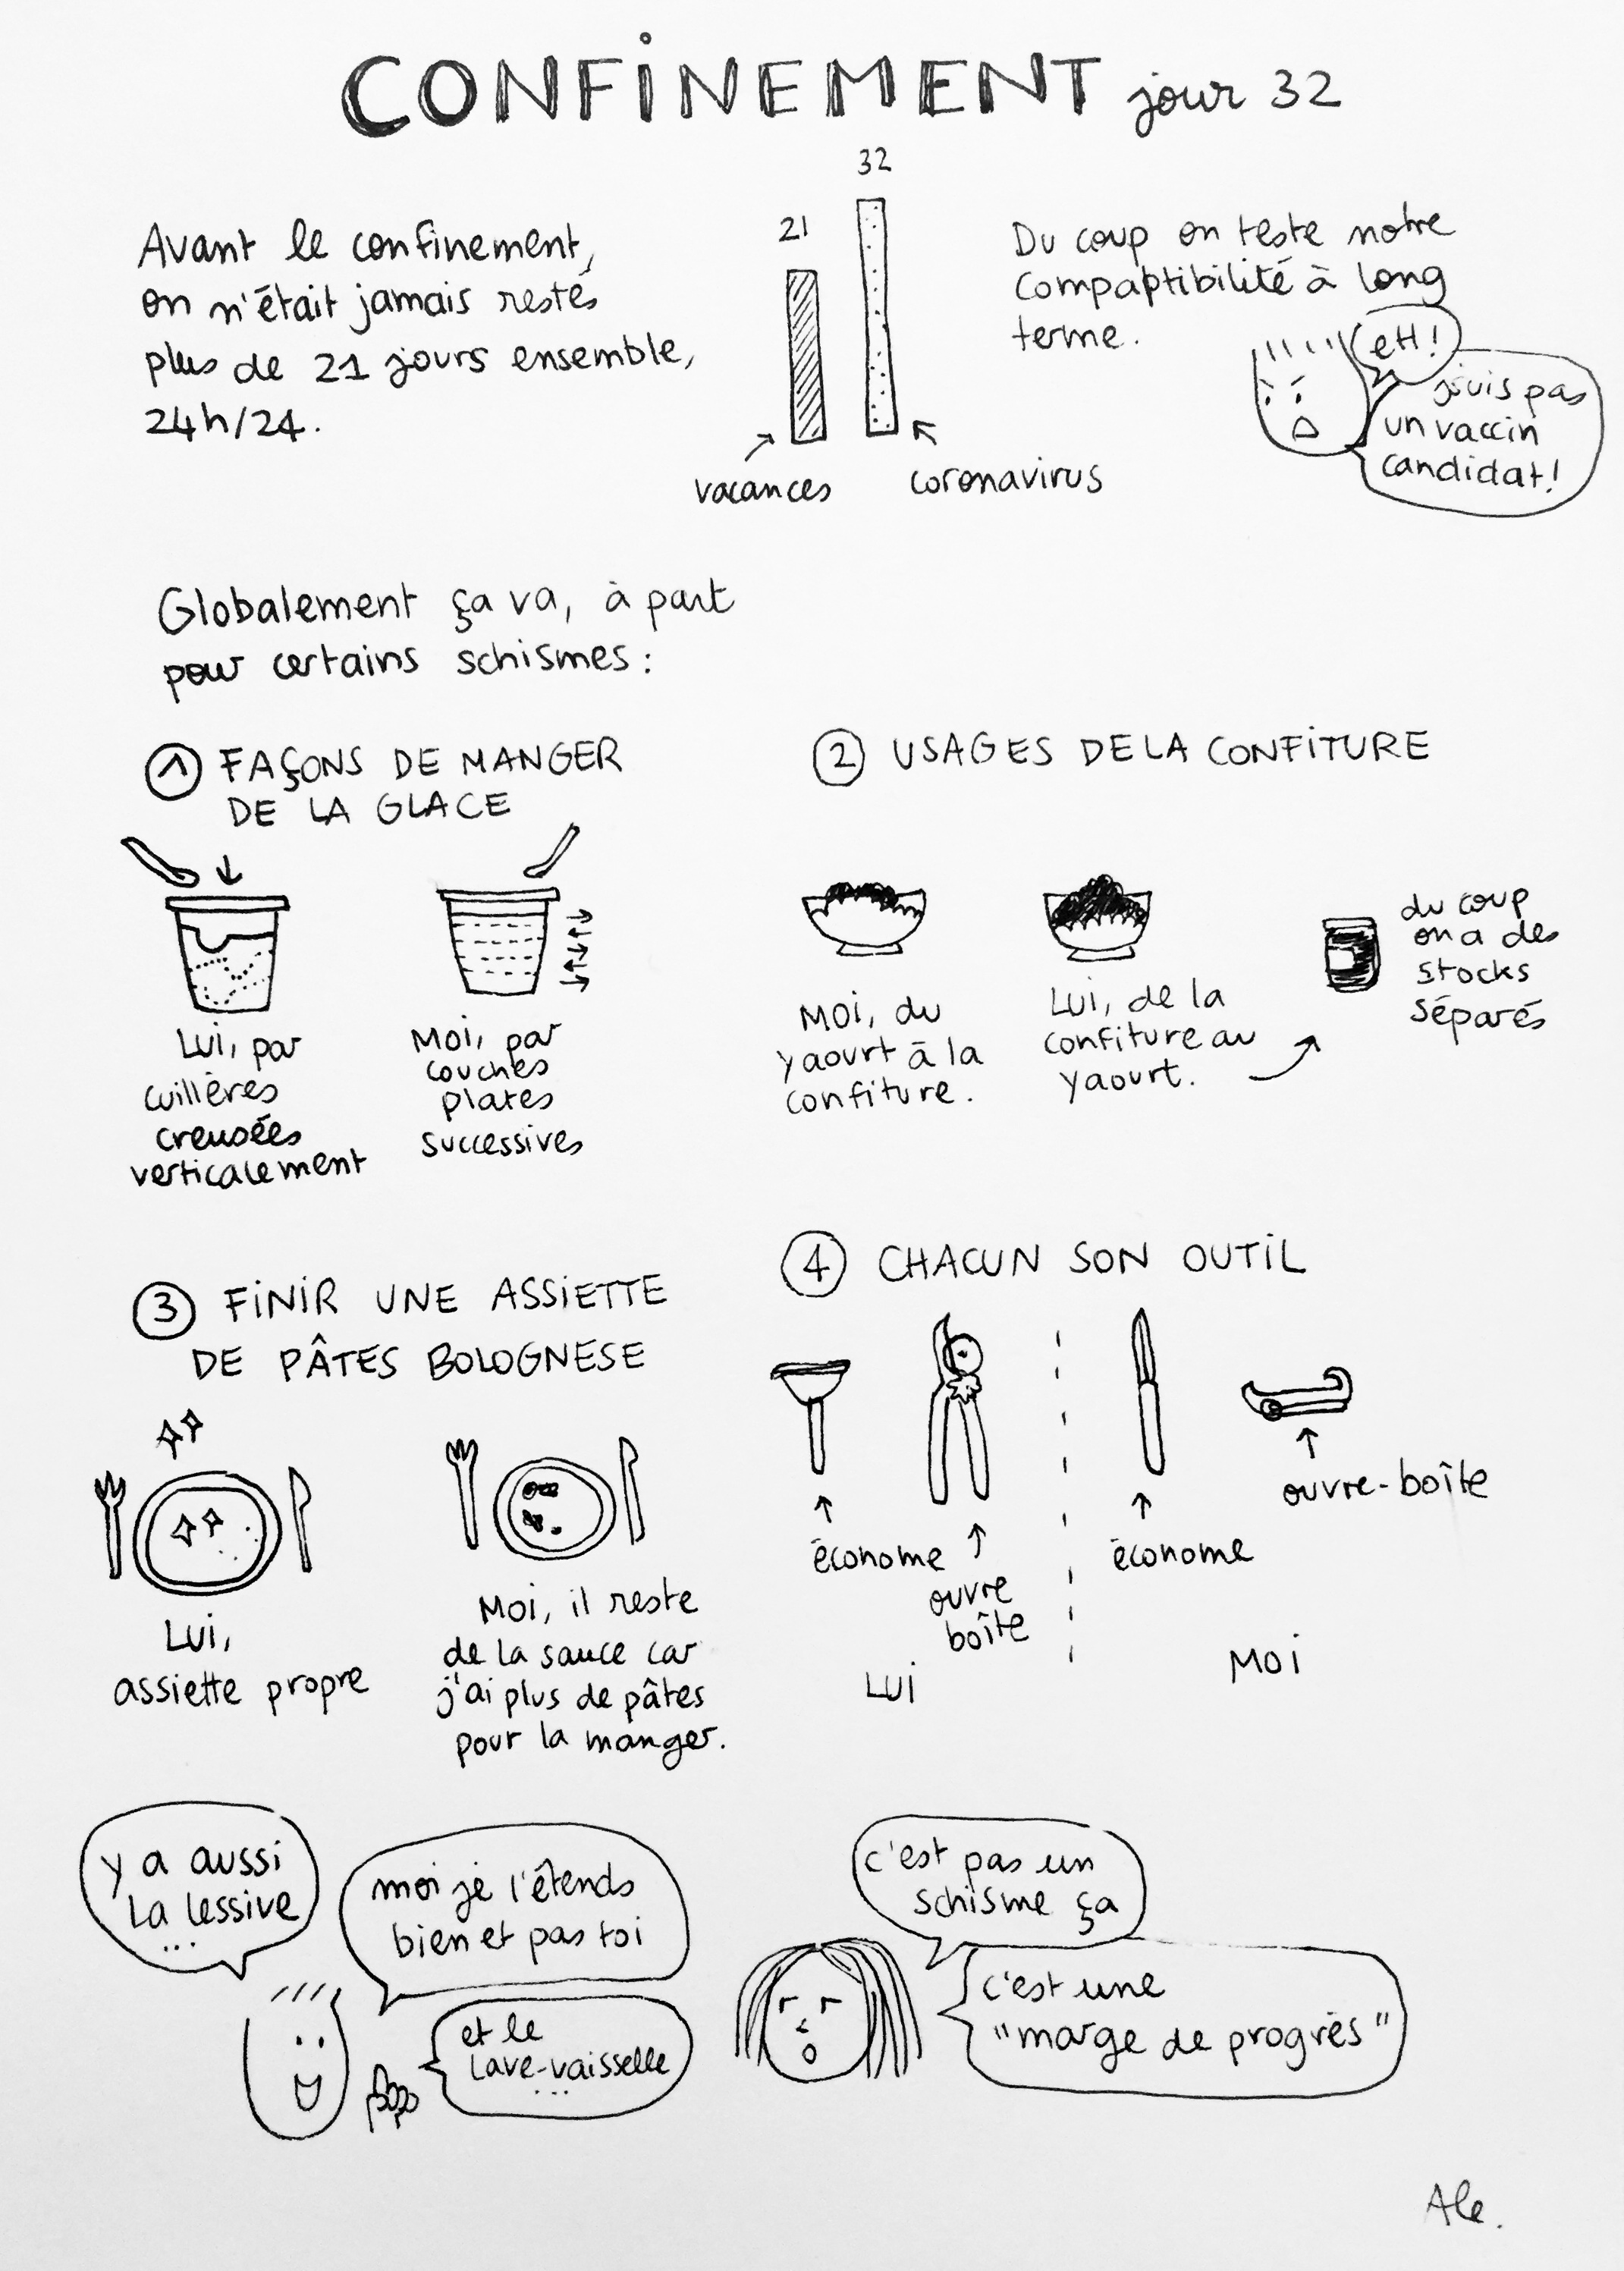 CONFINEMENT jour 32
Avant le confinement,
on n'était jamais restés
plus de 21 jours ensemble,
24h/24.
21
32
vacances
coronavirus
Du coup on teste notre
compaptibilité à long
terme.
eH!
j'suis pas
un vaccin
candidat!
Globalement ça va, à part
pour certains schismes :
1 FAÇONS DE MANGER
DE LA GLACE
Lui, par
cuillères
creusées
verticalement
Moi, par
couches
plates
successives
2 USAGES DE LA CONFITURE
Moi, du
yaourt à la
confiture.
Lui, de la
confiture au
yaourt.
du coup
on a des
stocks
séparés
3 FINIR UNE ASSIETTE
DE PÂTES BOLOGNESE
Lui,
assiette propre
Moi, il reste
de la sauce car
j'ai plus de pâtes
pour la manger.
4 CHACUN SON OUTIL
économe
ouvre
boîte
LUI
économe
ouvre-boîte
MOI
y a aussi
la lessive
...
moi je l'étends
bien et pas toi
et le
lave-vaisselle
...
c'est pas un
schisme ça
c'est une
"marge de progrès"
Ale.